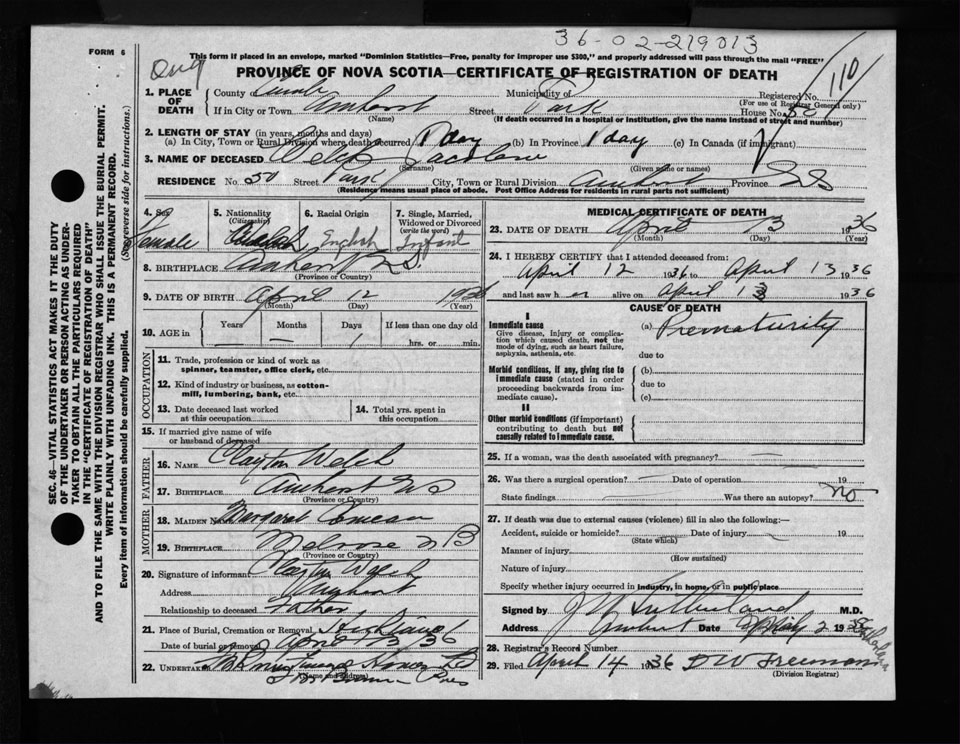 36-02-219013
FORM 6
This form if placed in an envelope, marked "Dominion Statistics—Free, penalty for improper use $300," and properly addressed will pass through the mail "FREE"
PROVINCE OF NOVA SCOTIA—CERTIFICATE OF REGISTRATION OF DEATH
110
1. PLACE OF DEATH
County of Cumb Municipality of Registered No.
(For use of Registrar General only)
If in City or Town Amherst Street Park House No.
(Name) (If death occurred in a hospital or institution, give the name instead of street and number)
2. LENGTH OF STAY (in years, months and days)
(a) In City, Town or Rural Division where death occurred 1 day (b) In Province 1 day (c) In Canada (if immigrant)
3. NAME OF DECEASED Welch
(Surname) (Given name or names)
RESIDENCE No. 50 Street Park City, Town or Rural Division Amherst Province NS
(Residence means usual place of abode. Post Office Address for residents in rural parts not sufficient)
4. Sex
Female
5. Nationality
(Citizenship)
6. Racial Origin
English
7. Single, Married, Widowed or Divorced
(write the word)
Infant
8. BIRTHPLACE Amherst N.S.
(Province or Country)
9. DATE OF BIRTH April 12 1936
(Month) (Day) (Year)
10. AGE in Years Months Days If less than one day old
— — 1 hrs. or min.
OCCUPATION
11. Trade, profession or kind of work as spinner, teamster, office clerk, etc.
12. Kind of industry or business, as cotton-mill, lumbering, bank, etc.
13. Date deceased last worked at this occupation
14. Total yrs. spent in this occupation
15. If married give name of wife or husband of deceased
FATHER
16. NAME Clayton Welch
17. BIRTHPLACE Amherst NS
(Province or Country)
MOTHER
18. MAIDEN NAME Margaret Comeau
19. BIRTHPLACE Melrose N B
(Province or Country)
20. Signature of informant Clayton Welch
Address Amherst
Relationship to deceased Father
21. Place of Burial, Cremation or Removal Highland
Date of burial or removal April 13 36
22. Undertaker
(Name and address)
MEDICAL CERTIFICATE OF DEATH
23. DATE OF DEATH April 13 1936
(Month) (Day) (Year)
24. I HEREBY CERTIFY that I attended deceased from:
April 12 1936 to April 13 1936
and last saw h er alive on April 13 1936
CAUSE OF DEATH
I
Immediate cause
Give disease, injury or complication which caused death, not the mode of dying, such as heart failure, asphyxia, asthenia, etc.
(a) Prematurity
due to
Morbid conditions, if any, giving rise to immediate cause (stated in order proceeding backwards from immediate cause).
(b)
due to
(c)
II
Other morbid conditions (if important) contributing to death but not causally related to immediate cause.
25. If a woman, was the death associated with pregnancy? —
26. Was there a surgical operation? — Date of operation —
State findings Was there an autopsy? no
27. If death was due to external causes (violence) fill in also the following:—
Accident, suicide or homicide? Date of injury 19
(State which)
Manner of injury
(How sustained)
Nature of injury
Specify whether injury occurred in industry, in home, or in public place
Signed by Sutherland M.D.
Address Amherst Date 19
28. Registrar's Record Number
29. Filed April 14 1936 Freeman
(Division Registrar)
SEC. 46—VITAL STATISTICS ACT MAKES IT THE DUTY OF THE UNDERTAKER OR PERSON ACTING AS UNDERTAKER TO OBTAIN ALL THE PARTICULARS REQUIRED IN THE "CERTIFICATE OF REGISTRATION OF DEATH"
AND TO FILE THE SAME WITH THE DIVISION REGISTRAR WHO SHALL ISSUE THE BURIAL PERMIT.
WRITE PLAINLY WITH UNFADING INK. THIS IS A PERMANENT RECORD.
Every item of information should be carefully supplied. (See reverse side for instructions.)